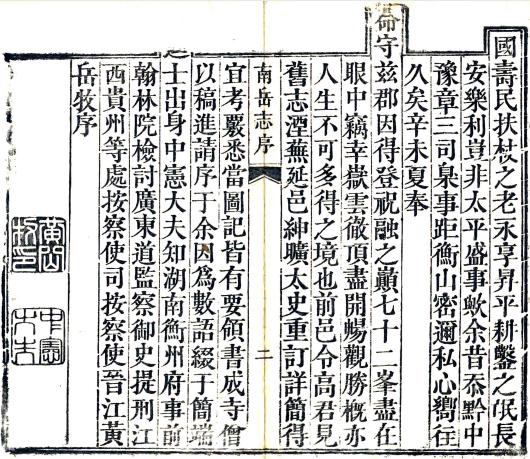 國壽民扶杖之老永享昇平耕鑿之氓長
安樂利豈非太平盛事歟余昔忝黔中
豫章三司臬事距衡山密邇私心嚮往
久矣辛未夏奉
命守茲郡因得登祝融之巔七十二峯盡在
眼中竊幸嶽雲徹頂盡開暢觀勝概亦
人生不可多得之境也前邑令高君見
舊志湮蕪延邑紳曠太史重訂詳簡得
南岳志序 二
宜考覈悉當圖記皆有要領書成寺僧
以稿進請序于余因爲數語綴于簡端
士出身中憲大夫知湖南衡州府事前
翰林院檢討廣東道監察御史提刑江
西貴州等處按察使司按察使晉江黃
岳牧序
黃岳牧印
中憲大夫